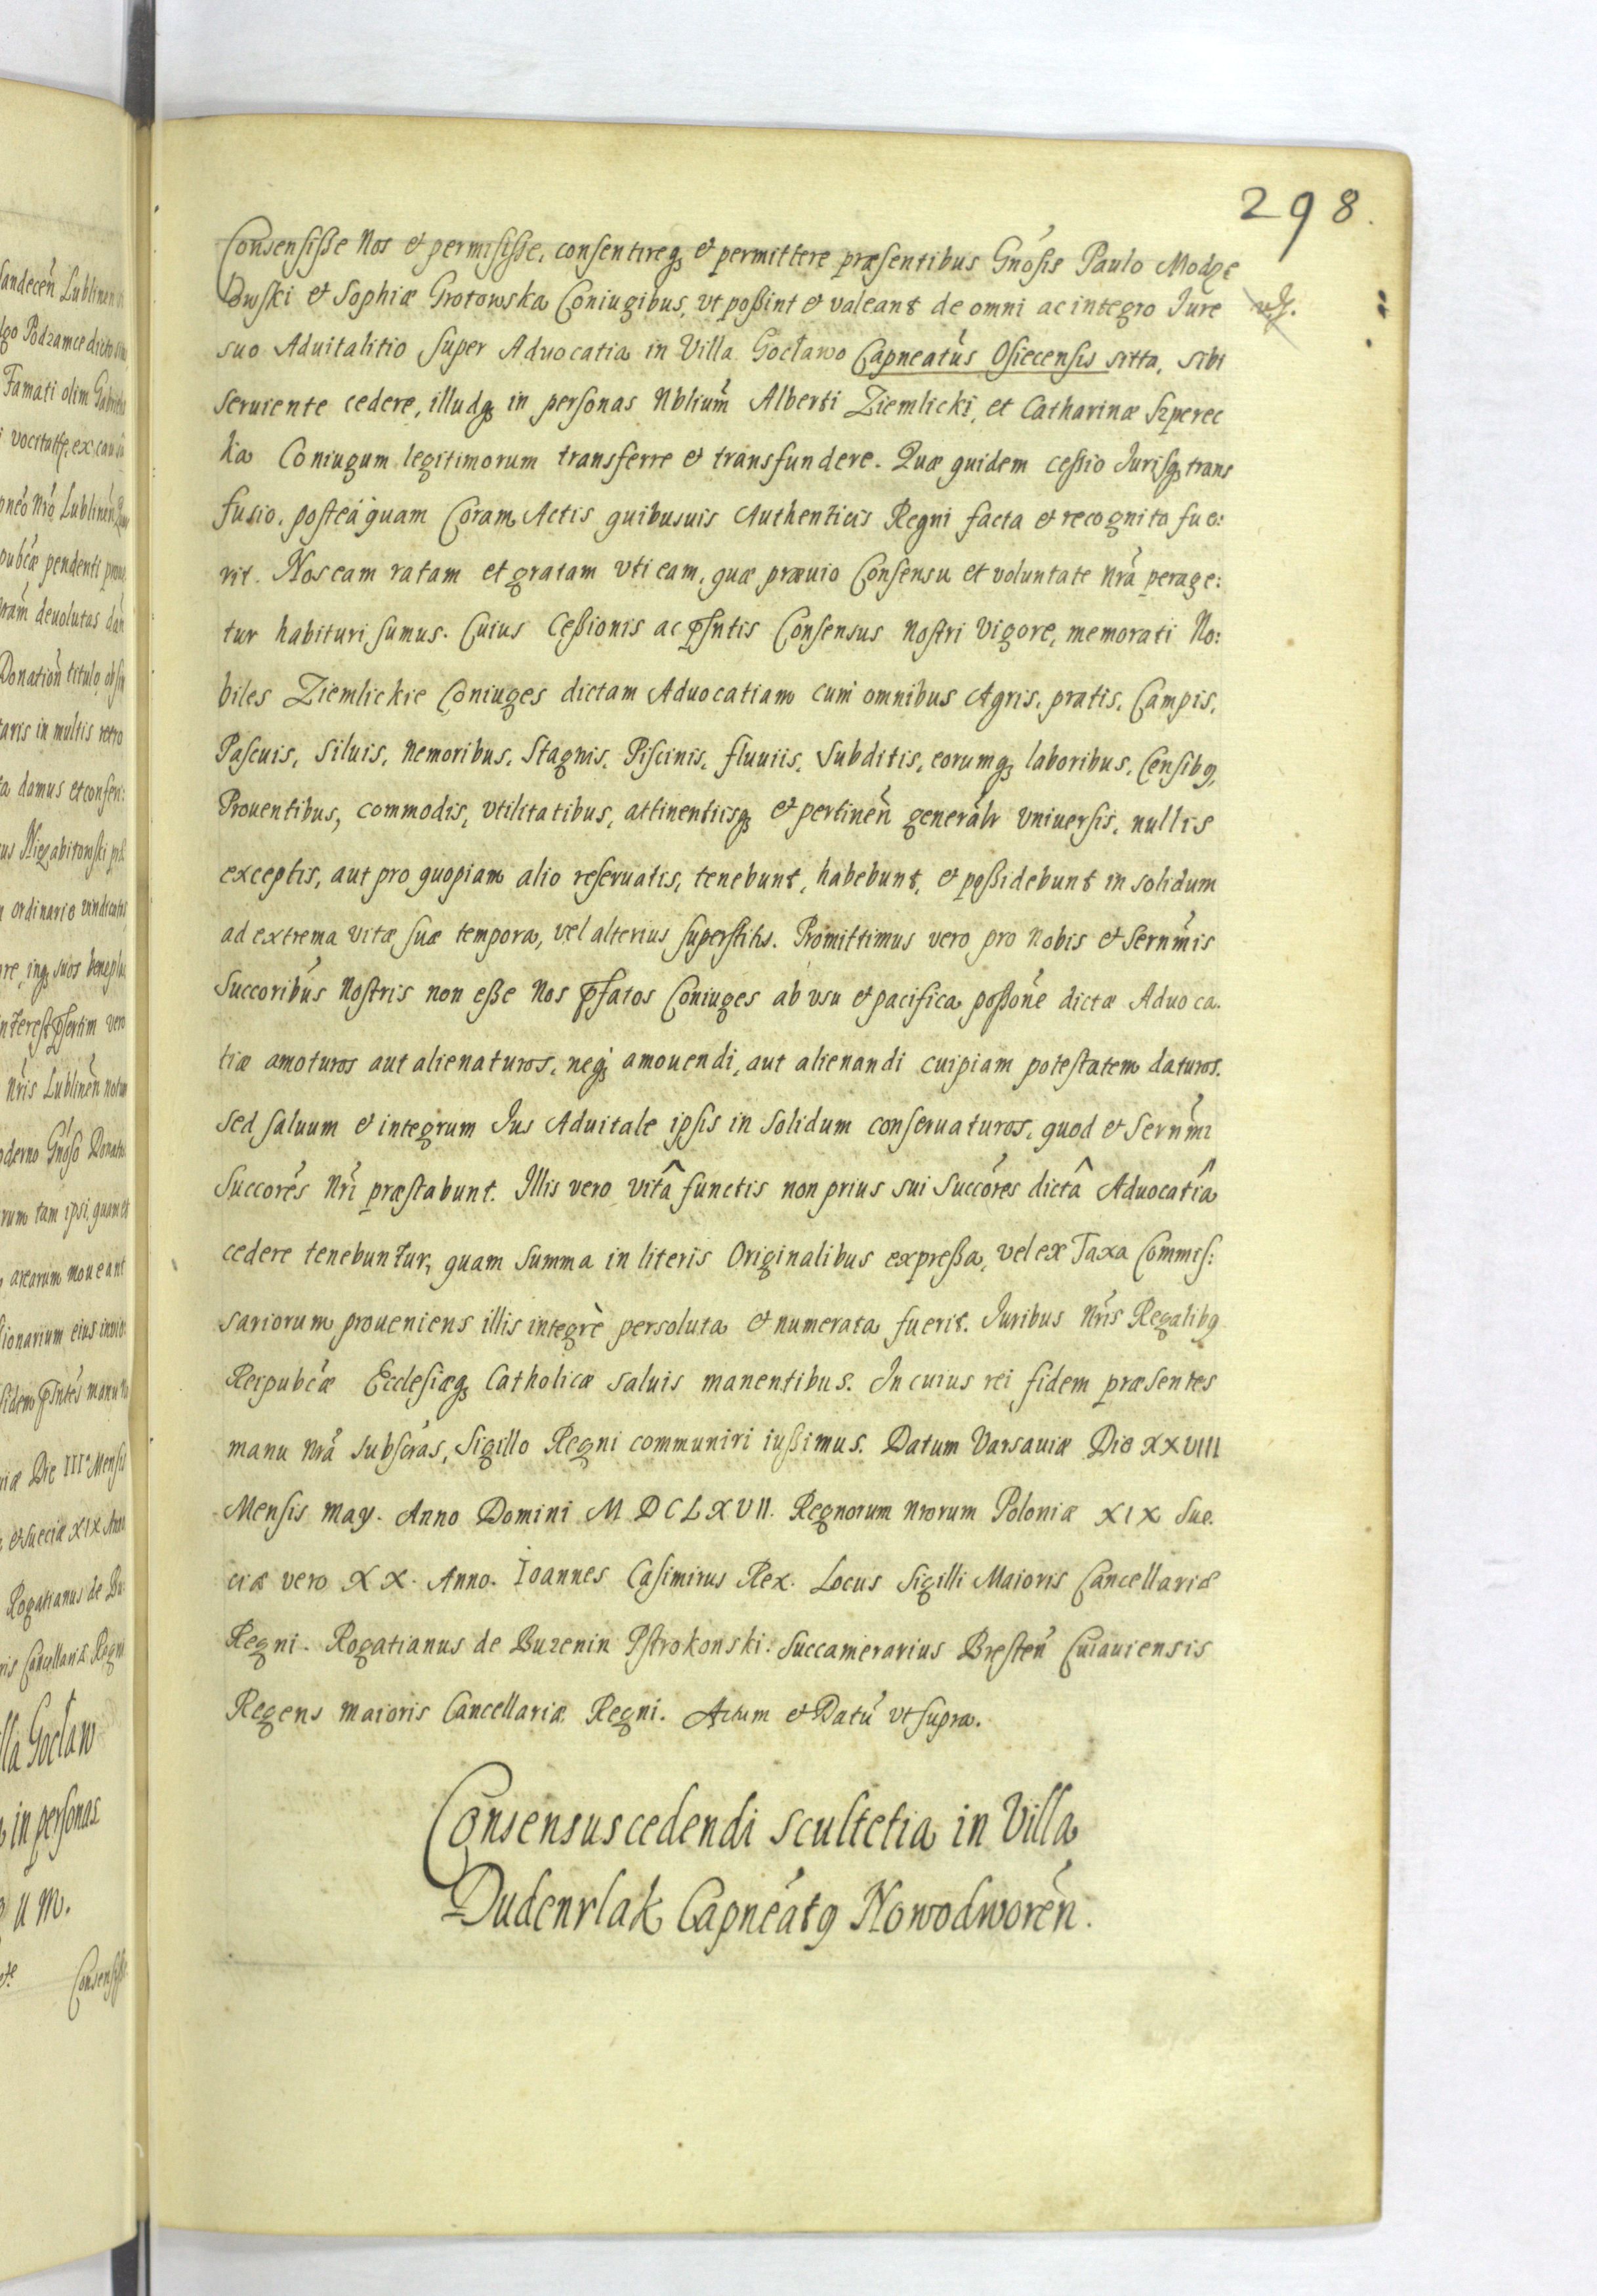 298.
Consensisse Nos et permisisse, consentireq3 et permittere præsentibus Gnósis Paulo Modze
Dowski et Sophiæ Grotowska Coniugibus, vt possint et valeant de omni ac integro Jure
suo Aduitalitio super Aduocatia in Villa Gocławo Capneatûs Osiecensis sitta, sibi
seruiente cedere, illudq3 in personas Nblium̃ Alberti Ziemlicki, et Catharinæ Szperec
ka Coniugum legitimorum transferre et transfundere. Quæ quidem cessio Jurisq3 trans
fusio, posteaquam Coram Actis quibusuis Authenticis Regni facta et recognita fue:
rit. Nos eam ratam et gratam vti eam, quæ præuio Consensu et voluntate Nrã perage:
tur habituri sumus. Cuius Cessionis ac pſntis Consensus Nostri Vigore, memorati No:
biles Ziemlickie Coniuges dictam Aduocatiam cum omnibus Agris, pratis, Campis,
Pascuis, Siluis, Nemoribus, Stagnis, Piscinis, fluuiis, Subditis, eorumq3 laboribus, Censib9,
Prouentibus, commodis, vtilitatibus, attinentiisq3 et pertineñ generalr̃ vniuersis, nullis
exceptis, aut pro quopiam alio reseruatis, tenebunt, habebunt, et possidebunt in solidum
ad extrema vitæ suæ tempora, vel alterius superstitis. Promittimus vero pro Nobis et Sernm̃is
Succoribús Nostris non esse Nos pfatos Coniuges ab vsu et pacifica possoñe dictæ Aduoca.
tiæ amoturos aut alienaturos, neq3 amouendi, aut alienandi cuipiam potestatem daturos.
Sed saluum et integrum Jus Aduitale ipsis in Solidum conseruaturos, quod et Sernm̃i
Succorés Nri̇̃ præstabunt. Illis vero vitâ functis non prius sui Succorés dictâ Aduocatiâ
cedere tenebuntur, quam Summa in literis Originalibus expressa, vel ex Taxa Commis:
sariorum proueniens illis integrè persoluta et numerata fuerit. Juribus Nris̃ Regalib9
Reipubcæ̃ Ecclesiæq3 Catholicæ saluis manentibus. In cuius rei fidem præsentes
manu Nrã subscrãs, Sigillo Regni communiri iussimus. Datum Varsauiæ Die XXVIII
Mensis May. Anno Domini MDCLXVII. Regnorum Nrorum Poloniæ XIX Sue.
ciæ vero XX. Anno. Ioannes Casimirus Rex. Locus Sigilli Maioris Cancellariæ
Regni. Rogatianus de Buzenin Pstrokonski. Succamerarius Bresteñ Cuiauiensis
Regens maioris Cancellariæ Regni. Actum et Datũ vt supra.
Consensus cedendi Scultetia in Villa
Dudenrlak Capneát9 Nowodworeñ.